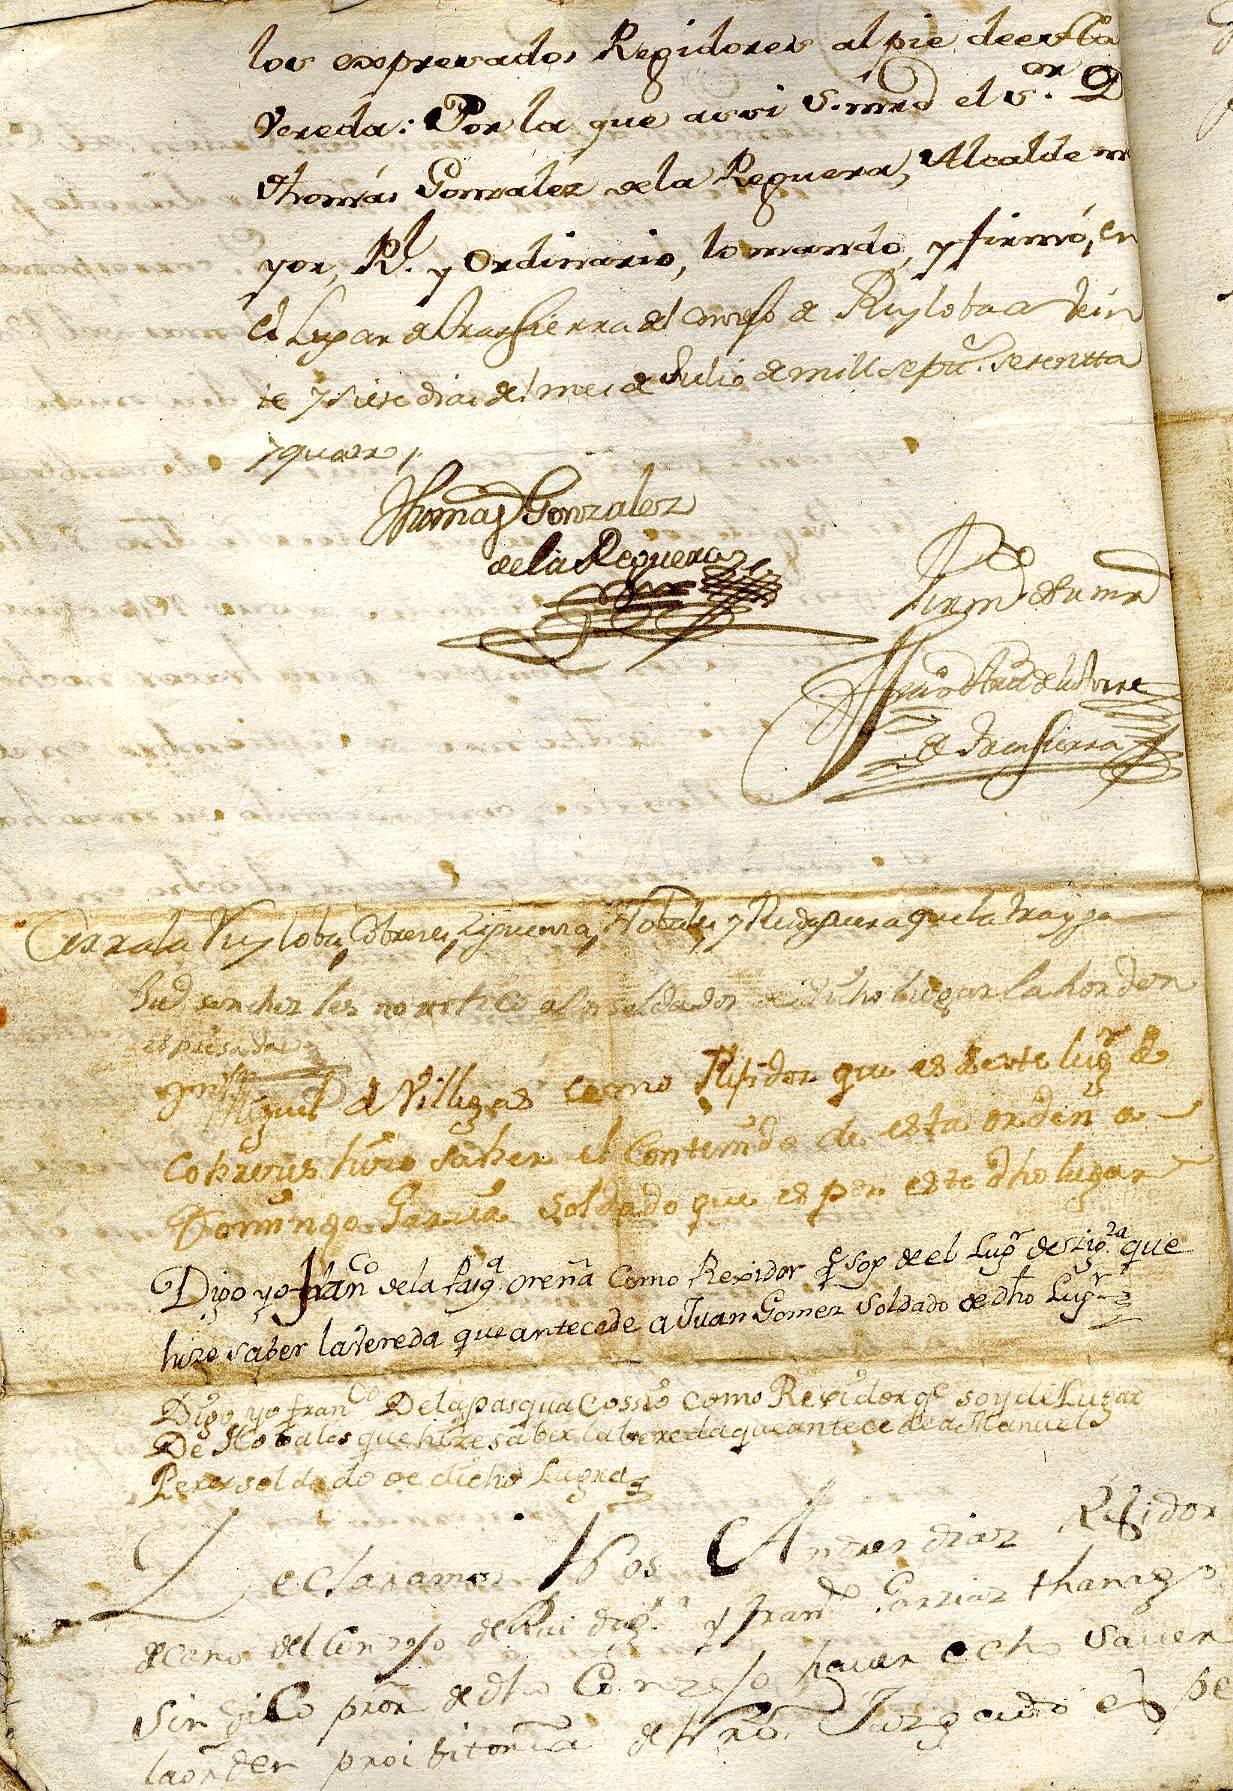 los expresados Regidores al pie de esta
Vereda: Por la que assi S. mrd el Sor. D
Thomás Gonzalez de la Reguera, Alcalde ma
yor, Rl. y Ordinario, lo mando, y firmó, en
el Lugar de Trassierra del Conzejo de Ruyloba a Vein
te y siete dias del mes de Julio de mill setezs. setentta
y quatro,
Thomas Gonzalez
de la Reguera
Por
de su mrd
de la Torre
de Trassierra
Corra la Ruyloba, Cobreces, Ziguenza, Nobales, y Rudaguera que la trayga
Sanchez les notifico a los soldados de dicho lugar la horden
espresada
Miguel de Villegas como Rejidor que es de este lugr de
Cobreces hizo saber el Contenido de esta orden a
Domingo Garzia soldado que es por este dho lugar
Digo yo Franco de la Paiga. Oreña como Rexidor q soy de el Lugr de Zigza que
hize saber la Vereda que antecede a Juan Gomez Soldado de dho Lugr
Digo yo Franco De la pasqua Cossio como Rexidor qe soy del Lugar
De Nobales que hize saber la bereda que antecede a Manuel
Perez soldado de dicho Lugar
Declaramos Nos Andres diaz Rejidor
decano del Conzejo de Rui y Franco Garzia
Sindico pror de dho Conzejo haver echo Saver
la orden proibitoria de Vro Juzgado